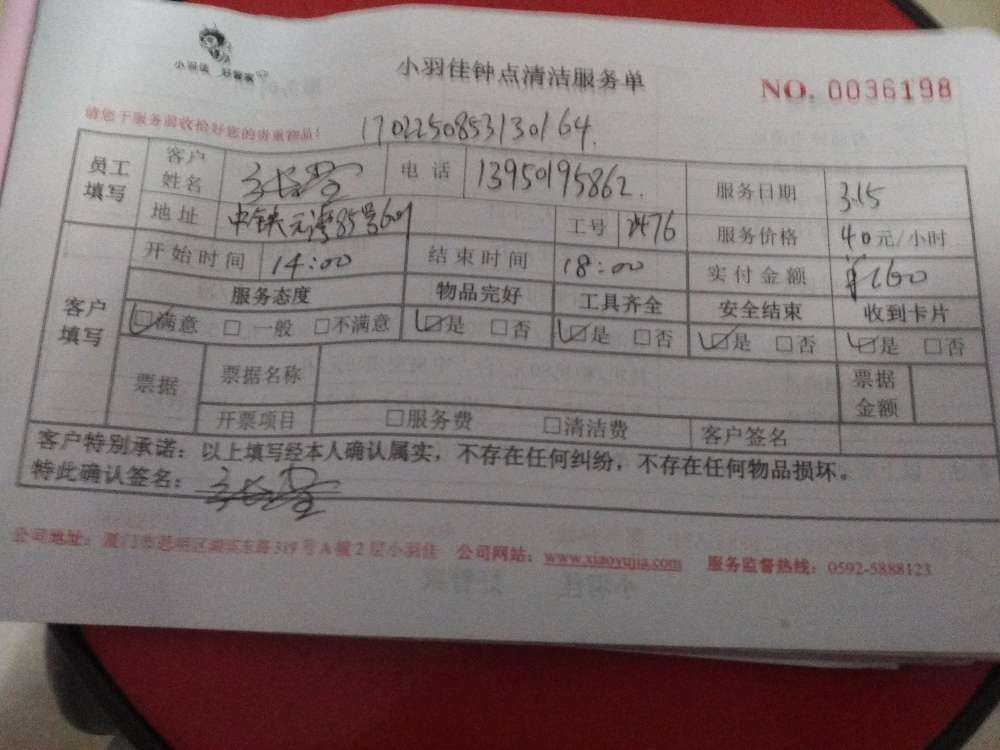 小羽佳 好管家
小羽佳钟点清洁服务单
NO. 0036198
请您于服务前收拾好您的贵重物品!
17022508531301 64.
员工填写 客户姓名 电话 13950195862. 服务日期 3.15
地址 中铁元湾85号601 工号 2476 服务价格 40元/小时
客户填写 开始时间 14:00 结束时间 18:00 实付金额 ¥160
服务态度 物品完好 工具齐全 安全结束 收到卡片
☑满意 □一般 □不满意 ☑是 □否 ☑是 □否 ☑是 □否 ☑是 □否
票据 票据名称 票据金额
开票项目 □服务费 □清洁费 客户签名
客户特别承诺:以上填写经本人确认属实,不存在任何纠纷,不存在任何物品损坏。
特此确认签名:
公司地址:厦门市思明区湖滨东路319号A幢2层小羽佳 公司网站:www.xiaoyujia.com 服务监督热线:0592-5888123